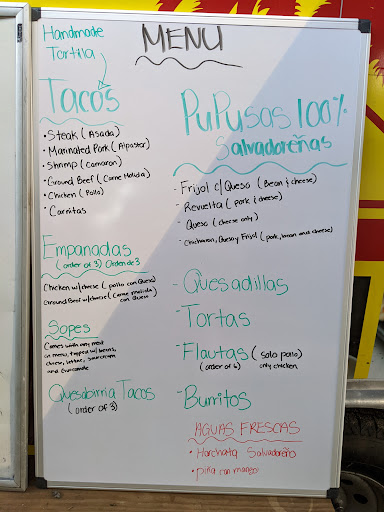 MENU
Handmade
Tortilla
Tacos
• Steak (Asada)
• Marinated Pork (Alpastor)
• Shrimp (Camaron)
• Ground Beef (Carne Molida)
• Chicken (Pollo)
• Carnitas
Empanadas
(order of 3) Orden de 3
Chicken w/cheese (pollo con Queso)
Ground Beef w/cheese (Carne molida
con Queso)
Sopes
Comes with any meat
on menu, topped w/ beans,
cheese, lettuce, sourcream
and Guacamole
Quesabirria Tacos
(order of 3)
PuPusas 100%
Salvadoreñas
- Frijol c/ Queso (Bean & cheese)
- Revuelta (pork & cheese)
Queso (cheese only)
- Chicharon, Queso y Frijol (pork, bean and cheese)
- Quesadillas
- Tortas
- Flautas (solo pollo)
(order of 6) only chicken
- Burritos
AGUAS FRESCAS
• Horchata Salvadoreño
• piña con mango